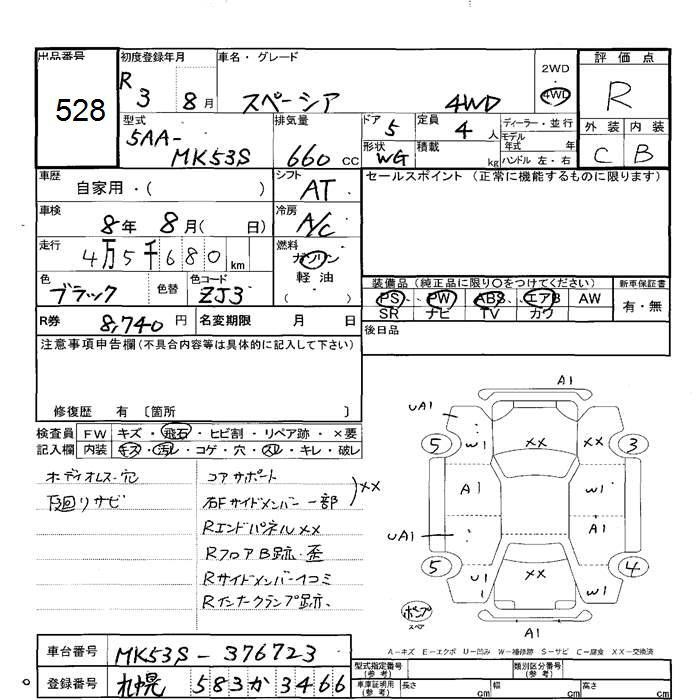 出品番号
528
初度登録年月
R 3 8月
車名・グレード
スペーシア 4WD
2WD
4WD
評価点
R
外装 内装
C B
型式
5AA-
MK53S
排気量
660 cc
ドア 5
形状 WG
定員 4 人
積載 kg
ディーラー・並行
モデル年式 年
ハンドル 左・右
車歴
自家用・( )
シフト
AT
車検
8年 8月( 日)
冷房
A/C
走行
4万5千680 km
燃料
ガソリン
軽油
( )
色
ブラック
色替
色コード
ZJ3
R券 8,740 円
名変期限 月 日
セールスポイント (正常に機能するものに限ります)
装備品 (純正品に限り○をつけてください)
PS PW ABS エアB AW
SR ナビ TV カワ
新車保証書
有・無
後日品
注意事項申告欄(不具合内容等は具体的に記入して下さい)
修復歴 有 〔箇所 〕
検査員 FW キズ・飛石・ヒビ割・リペア跡・×要
記入欄 内装 キズ・汚レ・コゲ・穴・スレ・キレ・破レ
ボディオルス・穴
下回リサビ
コアサポート
右Fサイドメンバー一部
××
Rエンドパネル××
RフロアB跡・歪
Rサイドメンバー凹コミ
Rインナークランプ跡.
A1
UA1
W1
××
××
5
3
A1
W1
UA1
A1
5
4
U1
××
W1
A1
ポンプ
スペア
A－キズ E－エクボ U－凹み W－補修跡 S－サビ C－腐食 XX－交換済
車台番号 MK53S-376723
登録番号 札幌 583 か 3466
型式指定番号
(参考)
類別区分番号
(参考)
車庫証明用
(参考)
長さ cm
幅 cm
高さ cm